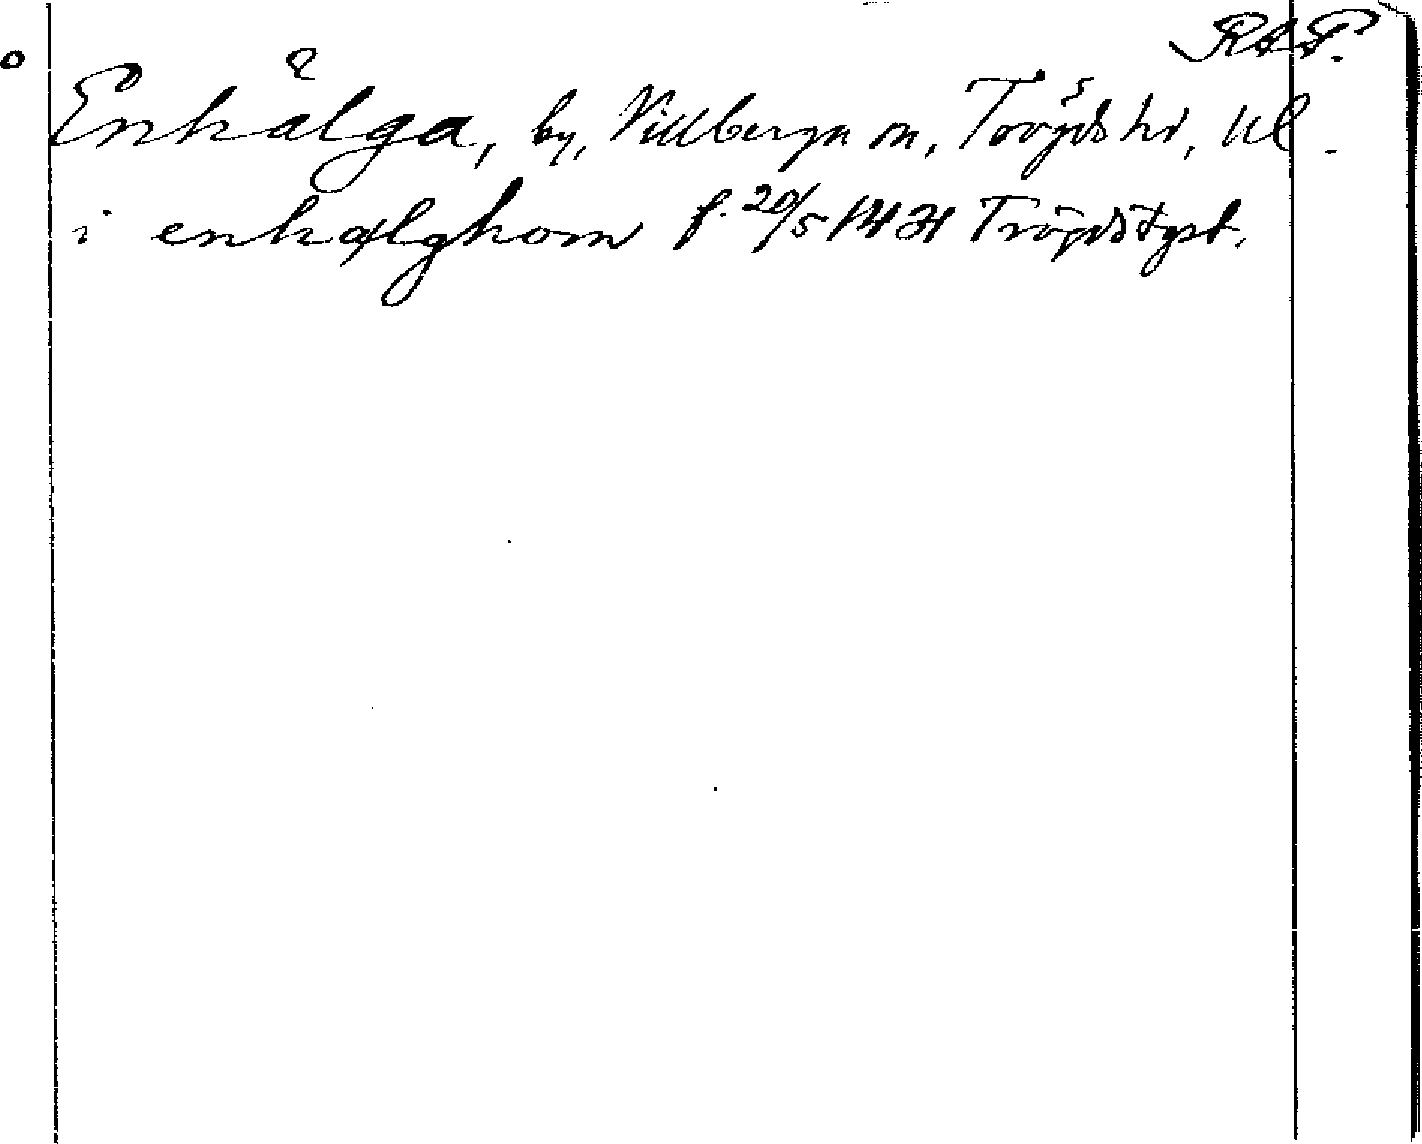 RAP.
Enhälga, by, Villberga sn, Trögds hd, Ul.
i enhælghom f. 20/5 1431 Trögds tgst.